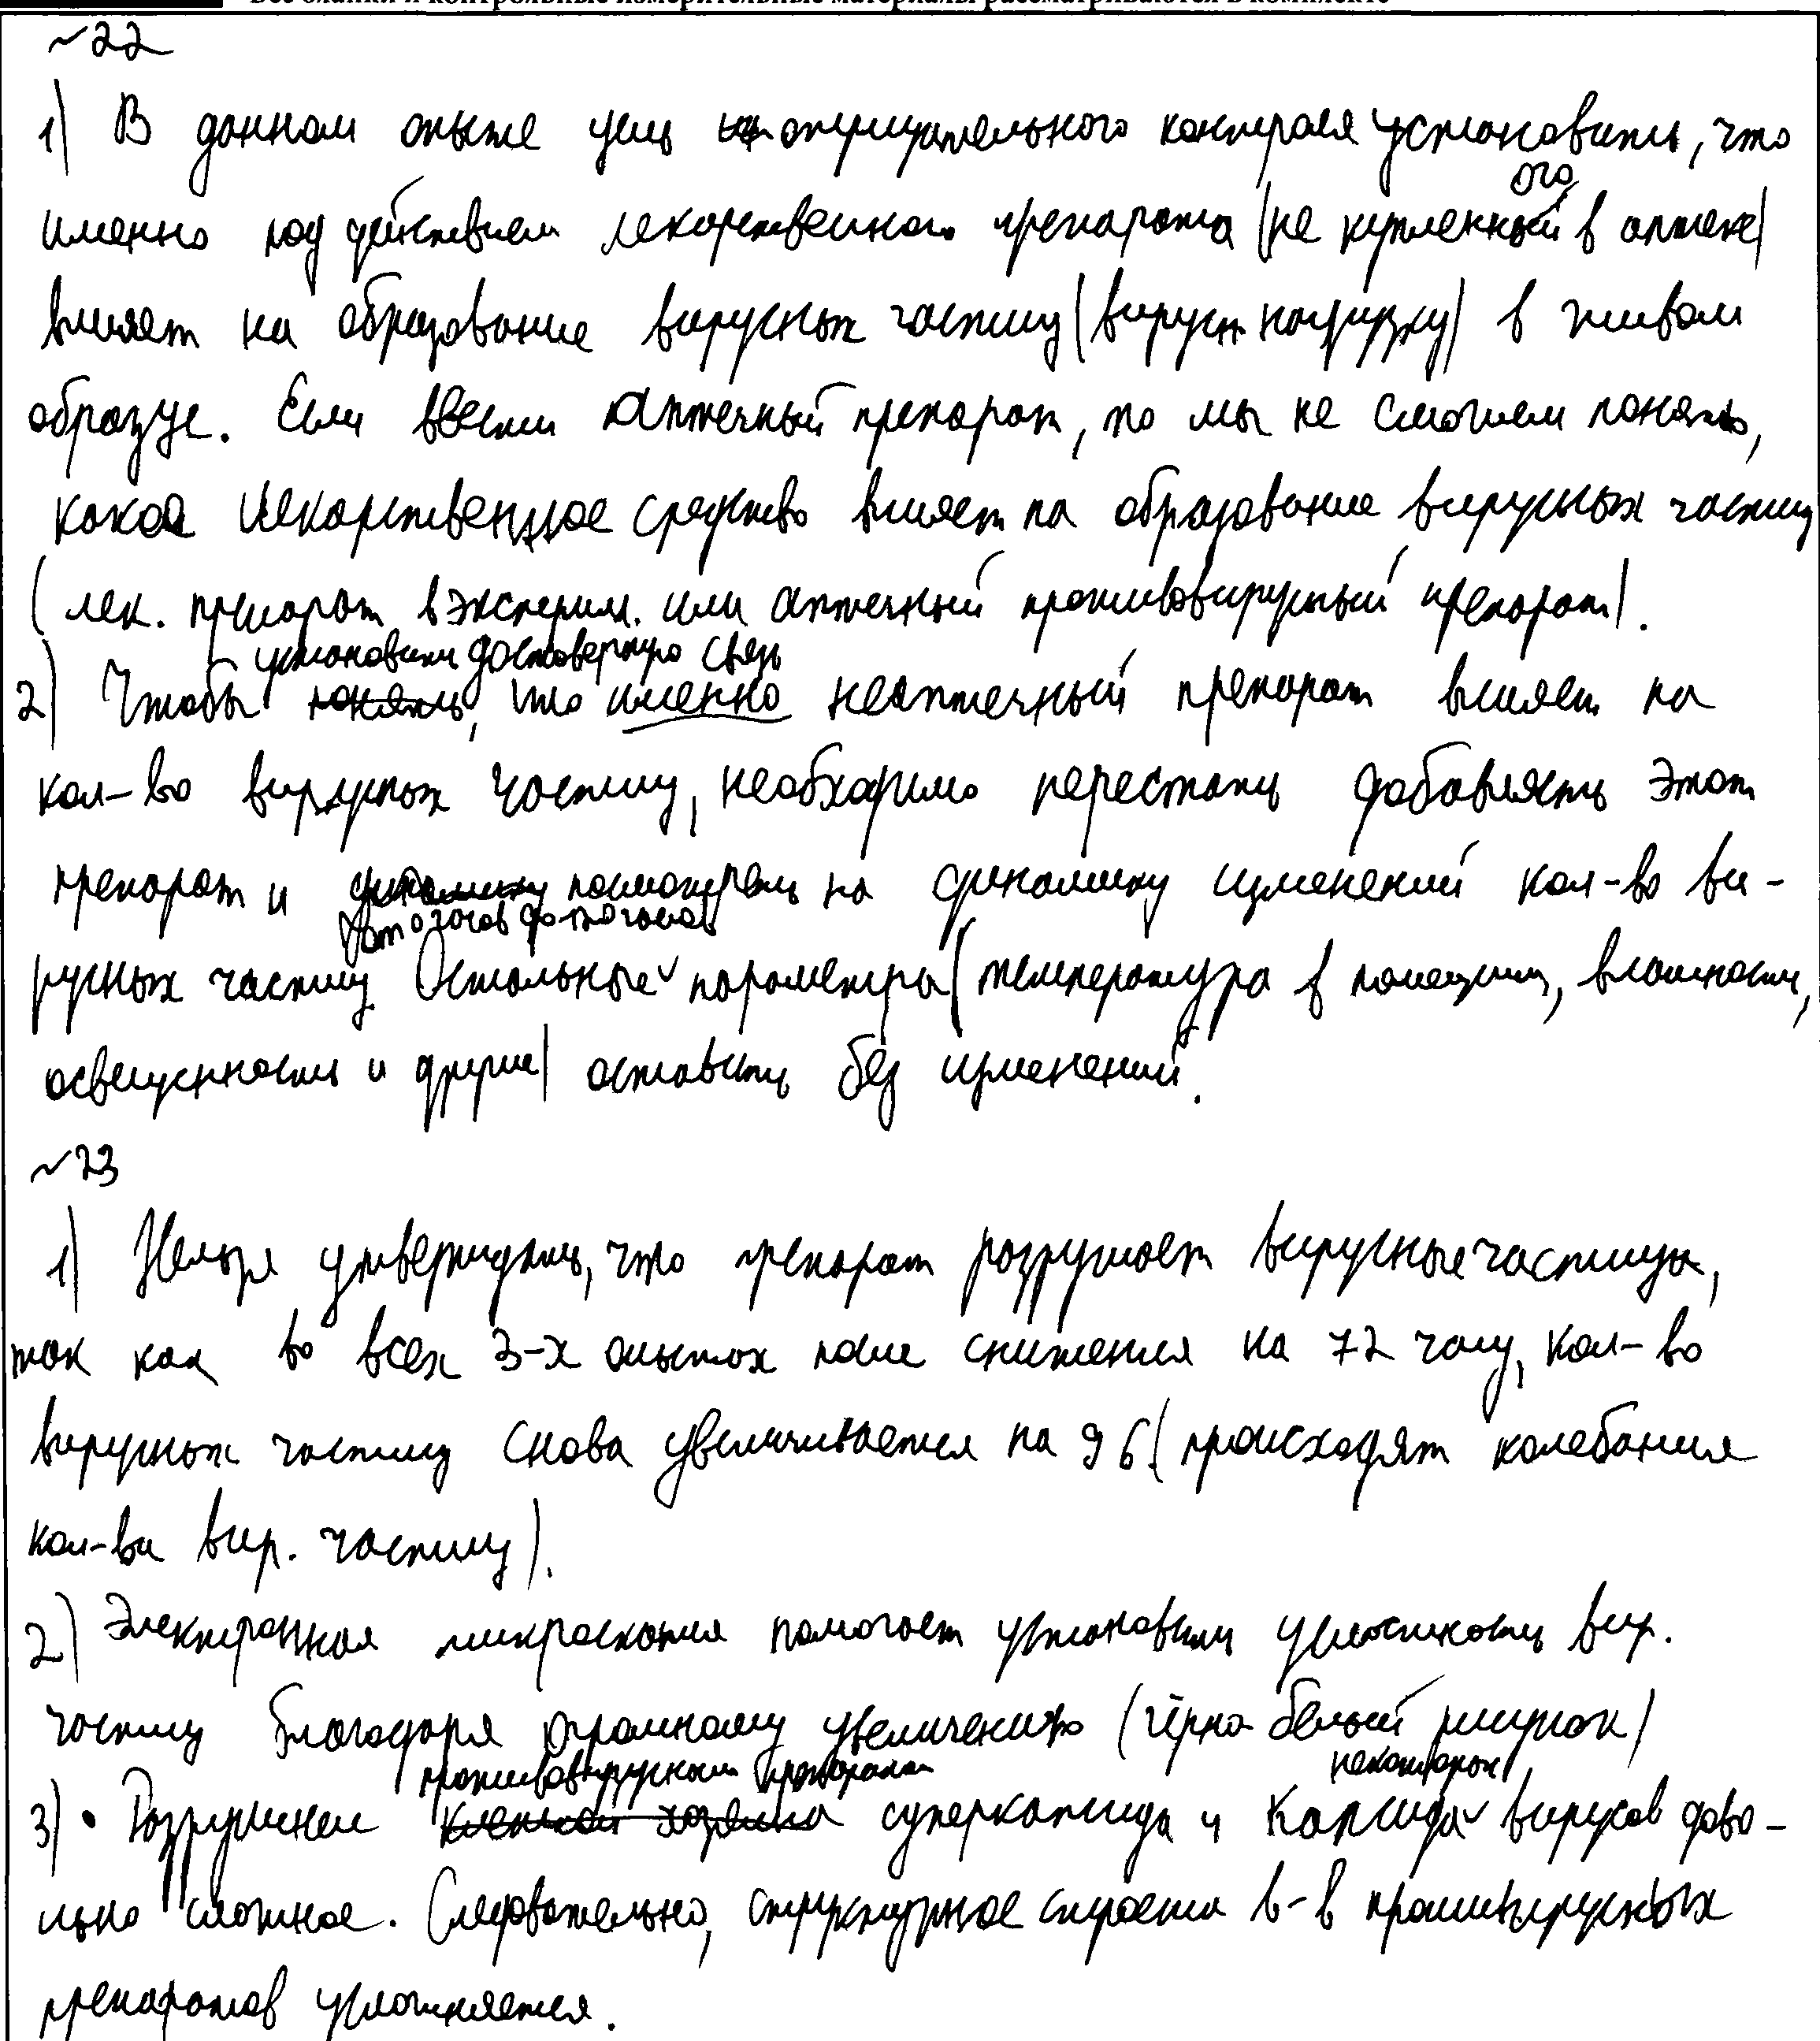 Все бланки и контрольные измерительные материалы рассматриваются в комплекте
~22
1) В данном опыте цель отрицательного контроля установить, что
ого
именно под действием лекарственного препарата (не купленный в аптеке)
влияет на образование вирусных частиц (вирусн нагрузку) в живом
образце. Если ввести аптечный препарат, то мы не сможем понять,
какое лекарственное средство влияет на образование вирусных частиц
(лек. препарат в эксперим. или аптечный противовирусный препарат).
установить достоверную связь
2) Чтобы понять, что именно неаптечный препарат влияет на
кол-во вирусных частиц, необходимо перестать добавлять этот
препарат и динамику посмотреть на динамику изменений кол-во ви-
от 0 часов до 120 часов
русных частиц. Остальные параметры (температура в помещении, влажность,
освещенность и другие) оставить без изменений.
~23
1) Нельзя утверждать, что препарат разрушает вирусные частицы,
так как во всех 3-х опытах после снижения на 72 часу, кол-во
вирусных частиц снова увеличивается на 96 (происходят колебания
кол-ва вир. частиц).
2) Электронная микроскопия помогает установить целостность вир.
частиц благодаря огромному увеличению (чёрно-белый рисунок)
противовирусным препаратом некоторых
3) • Разрушение клеткой хозяина суперкапсида и капсида вирусов дово-
льно сложное. Следовательно, структурное строение в-в противовирусных
препаратов усложняется.